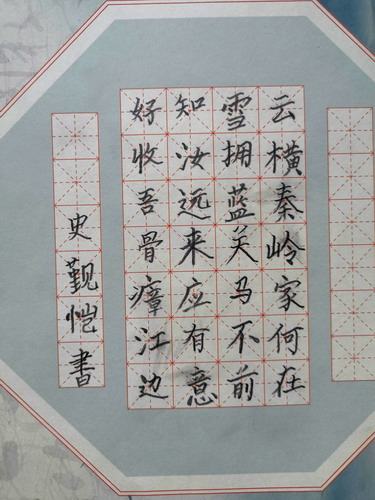 云横秦岭家何在
雪拥蓝关马不前
知汝远来应有意
好收吾骨瘴江边
史觐恺書